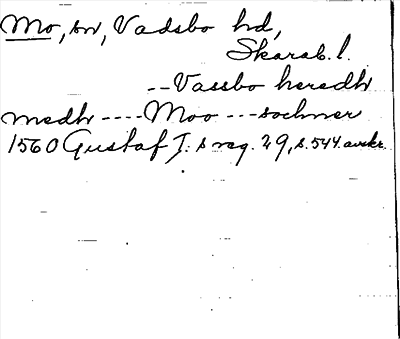 Mo, sn, Vadsbo hd,
Skarab. l.
-- Vassbo heradh
medh ---- Moo --- sochner
1560 Gustaf I: s reg. 29, s. 544. avskr.